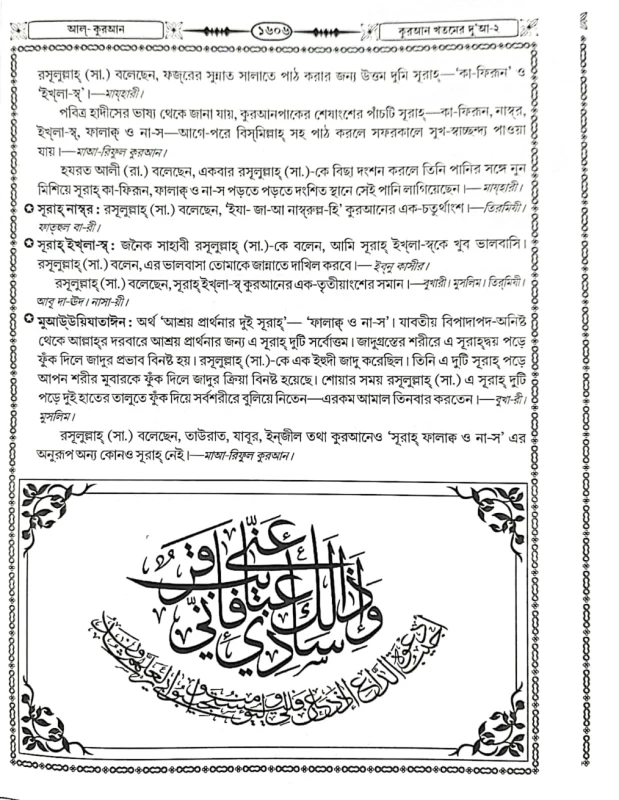 আল্- কুরআন
১৬০৬
কুরআন খতমের দু'আ-২
রসূলুল্লাহ্ (সা.) বলেছেন, ফজ্‌রের সুন্নাত সালাতে পাঠ করার জন্য উত্তম দুমি সূরাহ্—'কা-ফিরূন' ও
'ইখ্‌লা-স্ব'।—মায্‌হারী।
পবিত্র হাদীসের ভাষ্য থেকে জানা যায়, কুরআনপাকের শেষাংশের পাঁচটি সূরাহ্—কা-ফিরূন, নাস্বর,
ইখ্‌লা-স্ব, ফালাক্ব ও না-স—আগে-পরে বিস্‌মিল্লাহ্ সহ পাঠ করলে সফরকালে সুখ-স্বাচ্ছন্দ্য পাওয়া
যায়।—মাআ-রিফুল কুরআন।
হযরত আলী (রা.) বলেছেন, একবার রসূলুল্লাহ্ (সা.)-কে বিছা দংশন করলে তিনি পানির সঙ্গে নুন
মিশিয়ে সূরাহ্ কা-ফিরূন, ফালাক্ব ও না-স পড়তে পড়তে দংশিত স্থানে সেই পানি লাগিয়েছেন।—মায্‌হারী।
সূরাহ্ নাস্বর : রসূলুল্লাহ্ (সা.) বলেছেন, 'ইযা-জা-আ নাস্বরুল্ল-হি' কুরআনের এক-চতুর্থাংশ।—তিরমিযী।
ফাত্‌হুল বা-রী।
সূরাহ্ ইখ্‌লা-স্ব : জনৈক সাহাবী রসূলুল্লাহ্ (সা.)-কে বলেন, আমি সূরাহ্ ইখ্‌লা-স্বকে খুব ভালবাসি।
রসূলুল্লাহ্ (সা.) বলেন, এর ভালবাসা তোমাকে জান্নাতে দাখিল করবে।—ইব্‌নু কাসীর।
রসূলুল্লাহ্ (সা.) বলেছেন, সূরাহ্ ইখ্‌লা-স্ব কুরআনের এক-তৃতীয়াংশের সমান।—বুখারী। মুসলিম। তির্‌মিযী।
আবূ দা-ঊদ। নাসা-য়ী।
মুআউ্উয়িযাতাঈন : অর্থ 'আশ্রয় প্রার্থনার দুই সূরাহ্'— 'ফালাক্ব ও না-স'। যাবতীয় বিপাদাপদ-অনিষ্ট
থেকে আল্লাহ্‌র দরবারে আশ্রয় প্রার্থনার জন্য এ সূরাহ্ দুটি সর্বোত্তম। জাদুগ্রস্তের শরীরে এ সূরাহ্‌দ্বয় পড়ে
ফুঁক দিলে জাদুর প্রভাব বিনষ্ট হয়। রসূলুল্লাহ্ (সা.)-কে এক ইহুদী জাদু করেছিল। তিনি এ দুটি সূরাহ্ পড়ে
আপন শরীর মুবারকে ফুঁক দিলে জাদুর ক্রিয়া বিনষ্ট হয়েছে। শোয়ার সময় রসূলুল্লাহ্ (সা.) এ সূরাহ্ দুটি
পড়ে দুই হাতের তালুতে ফুঁক দিয়ে সর্বশরীরে বুলিয়ে নিতেন—এরকম আমাল তিনবার করতেন।—বুখা-রী।
মুসলিম।
রসূলুল্লাহ্ (সা.) বলেছেন, তাউরাত, যাবূর, ইন্‌জীল তথা কুরআনেও 'সূরাহ্ ফালাক্ব ও না-স' এর
অনুরূপ অন্য কোনও সূরাহ্ নেই।—মাআ-রিফুল কুরআন।
وإذا سألك عبادي عني فإني قريب
أجيب دعوة الداع إذا دعان فليستجيبوا لي وليؤمنوا بي لعلهم يرشدون